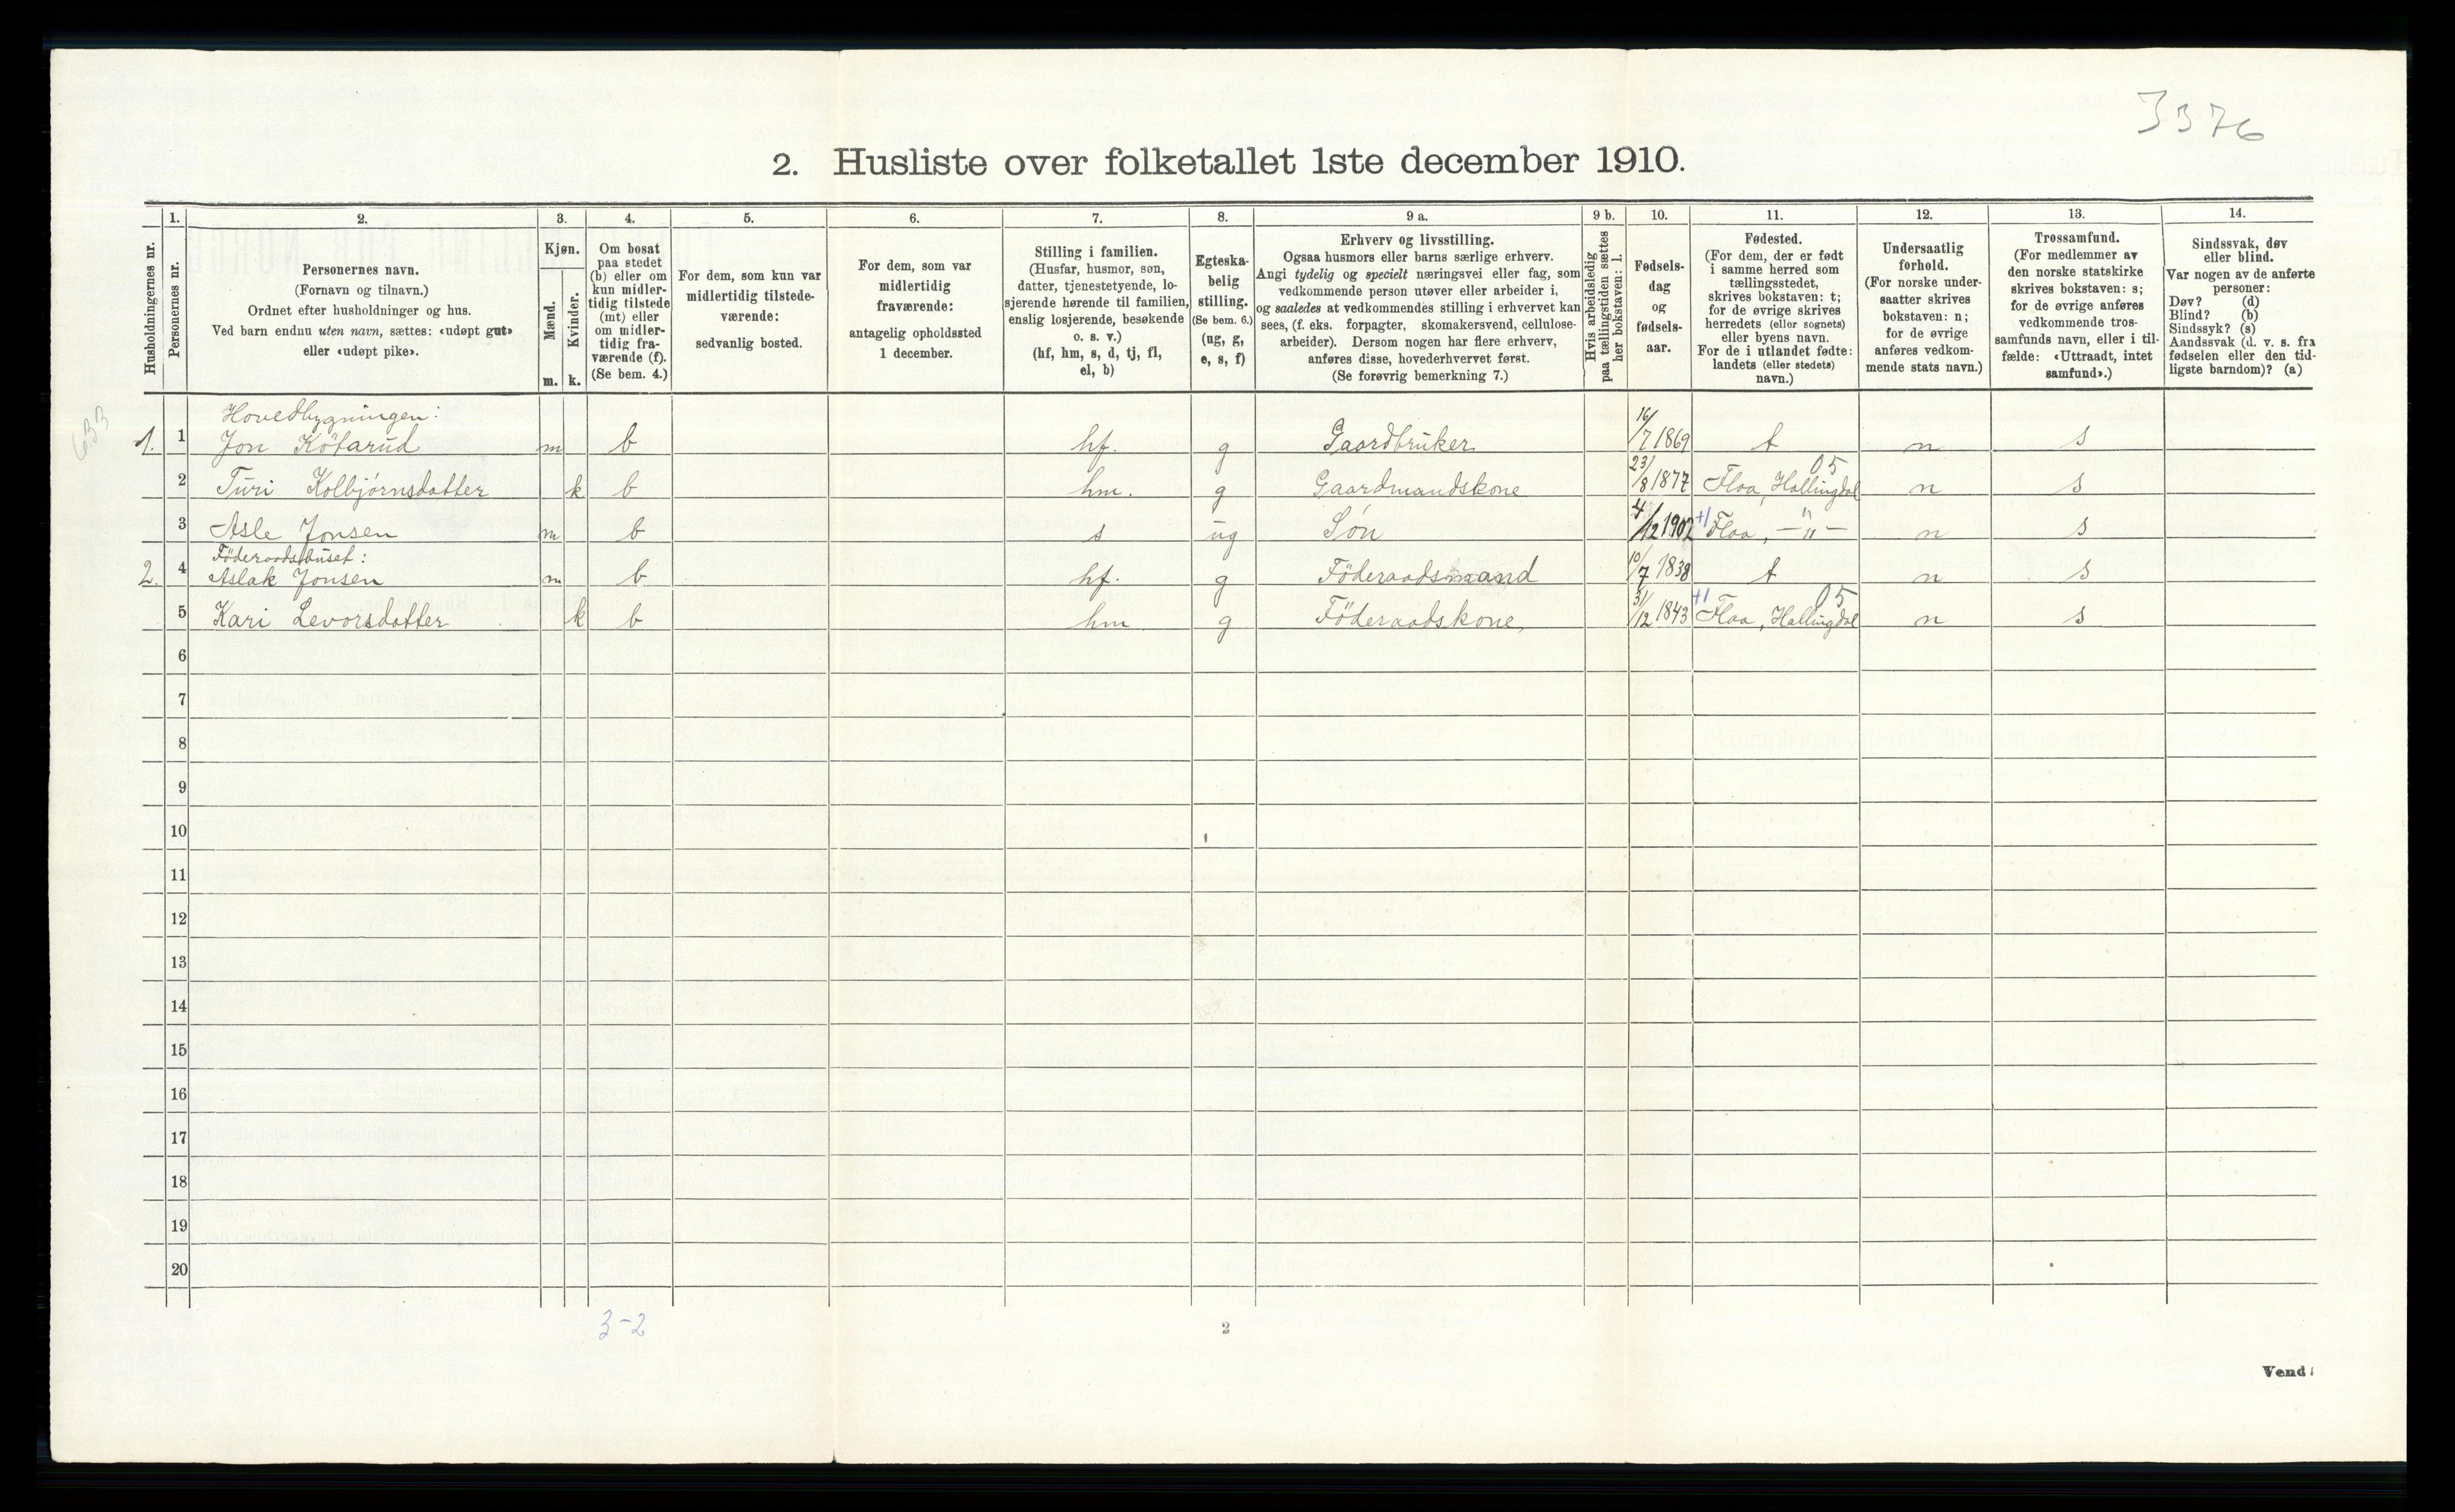 3376
2. Husliste over folketallet 1ste december 1910.
Husholdningernes nr.
1.
Personernes nr.
2.
Personernes navn.
(Fornavn og tilnavn.)
Ordnet efter husholdninger og hus.
Ved barn endnu uten navn, sættes: «udøpt gut»
eller «udøpt pike».
3.
Kjøn.
Mænd.
Kvinder.
m. k.
4.
Om bosat
paa stedet
(b) eller om
kun midler-
tidig tilstede
(mt) eller
om midler-
tidig fra-
værende (f).
(Se bem. 4.)
5.
For dem, som kun var
midlertidig tilstede-
værende:
sedvanlig bosted.
6.
For dem, som var
midlertidig
fraværende:
antagelig opholdssted
1 december.
7.
Stilling i familien.
(Husfar, husmor, søn,
datter, tjenestetyende, lo-
sjerende hørende til familien,
enslig losjerende, besøkende
o. s. v.)
(hf, hm, s, d, tj, fl,
el, b)
8.
Egteska-
belig
stilling.
(Se bem. 6.)
(ug, g,
e, s, f)
9 a.
Erhverv og livsstilling.
Ogsaa husmors eller barns særlige erhverv.
Angi tydelig og specielt næringsvei eller fag, som
vedkommende person utøver eller arbeider i,
og saaledes at vedkommendes stilling i erhvervet kan
sees, (f. eks. forpagter, skomakersvend, cellulose-
arbeider). Dersom nogen har flere erhverv,
anføres disse, hovederhvervet først.
(Se forøvrig bemerkning 7.)
9 b.
Hvis arbeidsledig
paa tællingstiden sættes
her bokstaven: l.
10.
Fødsels-
dag
og
fødsels-
aar.
11.
Fødested.
(For dem, der er født
i samme herred som
tællingsstedet,
skrives bokstaven: t;
for de øvrige skrives
herredets (eller sognets)
eller byens navn.
For de i utlandet fødte:
landets (eller stedets)
navn.)
12.
Undersaatlig
forhold.
(For norske under-
saatter skrives
bokstaven: n;
for de øvrige
anføres vedkom-
mende stats navn.)
13.
Trossamfund.
(For medlemmer av
den norske statskirke
skrives bokstaven: s;
for de øvrige anføres
vedkommende tros-
samfunds navn, eller i til-
fælde: «Uttraadt, intet
samfund».)
14.
Sindssvak, døv
eller blind.
Var nogen av de anførte
personer:
Døv? (d)
Blind? (b)
Sindssyk? (s)
Aandssvak (d. v. s. fra
fødselen eller den tid-
ligste barndom)? (a)
633
Hovedbygningen:
1. 1 Jon Kötarud m b hf. g Gaardbruker 16/7 1869 t n s
2 Turi Kolbjørnsdatter k b hm. g Gaardmandskone 23/8 1877 Flaa, Hallingdal 05 n s
3 Asle Jonsen m b s ug Søn 4/12 1902 +1 Flaa, —"— n s
Föderaadshuset:
2. 4 Aslak Jonsen m b hf. g Föderaadsmand 10/7 1838 t n s
5 Kari Levorsdatter k b hm g Föderaadskone, 31/12 1843 +1 Flaa, Hallingdal 05 n s
6
7
8
9
10
11
12
13
14
15
16
17
18
19
20
3-2
2
Vend!